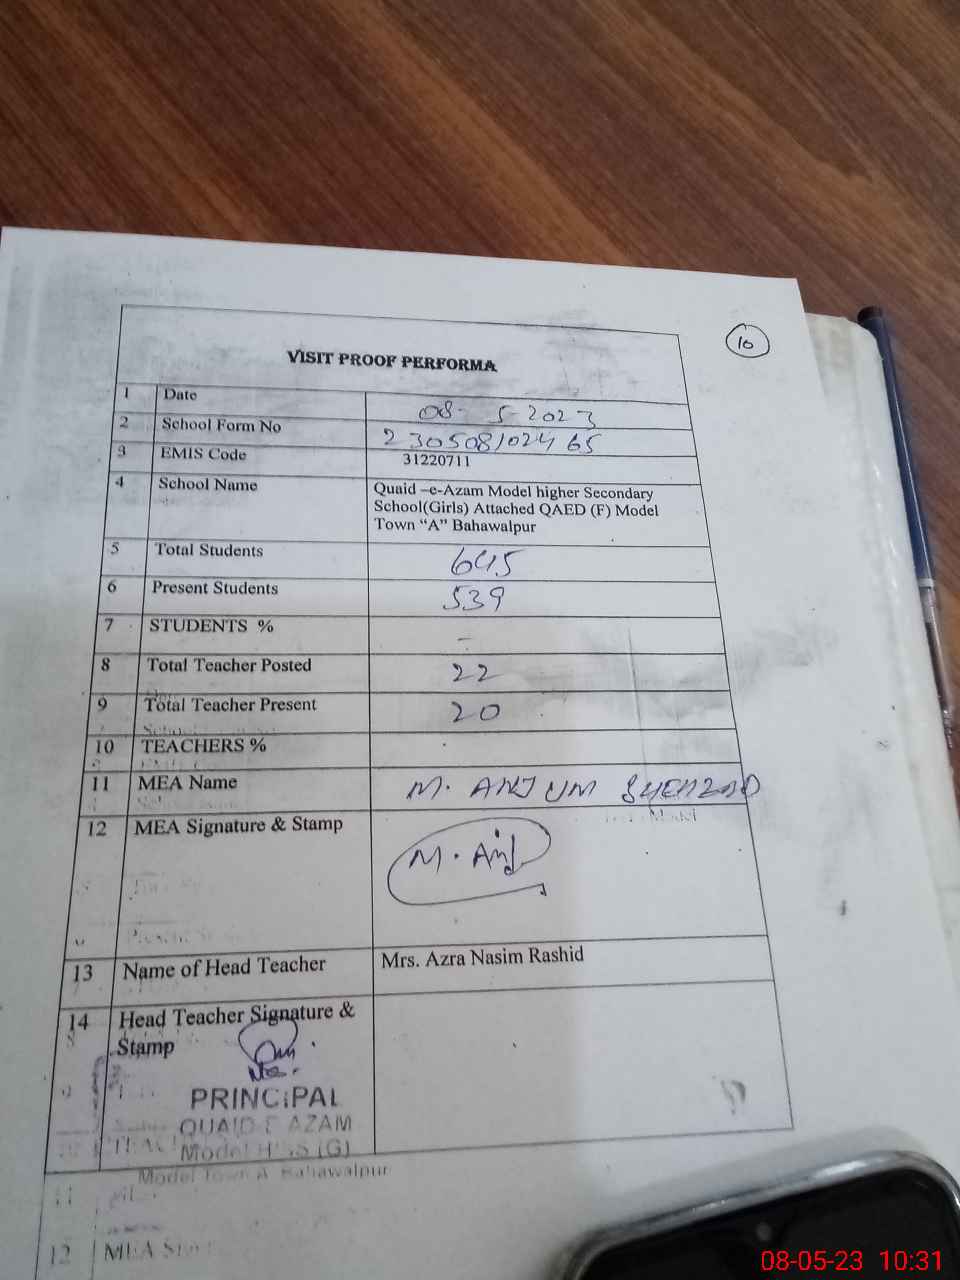 10
VISIT PROOF PERFORMA
1 Date 08-5-2023
2 School Form No 230508102465
3 EMIS Code 31220711
4 School Name Quaid –e-Azam Model higher Secondary
School(Girls) Attached QAED (F) Model
Town “A” Bahawalpur
5 Total Students 645
6 Present Students 539
7 STUDENTS % -
8 Total Teacher Posted 22
9 Total Teacher Present 20
10 TEACHERS %
11 MEA Name M. ANJUM SHEHZAD
12 MEA Signature & Stamp
M. Anj
13 Name of Head Teacher Mrs. Azra Nasim Rashid
14 Head Teacher Signature &
Stamp
PRINCIPAL
QUAID E AZAM
Model HSS (G)
Model Town A Bahawalpur
11
12 MEA
08-05-23 10:31